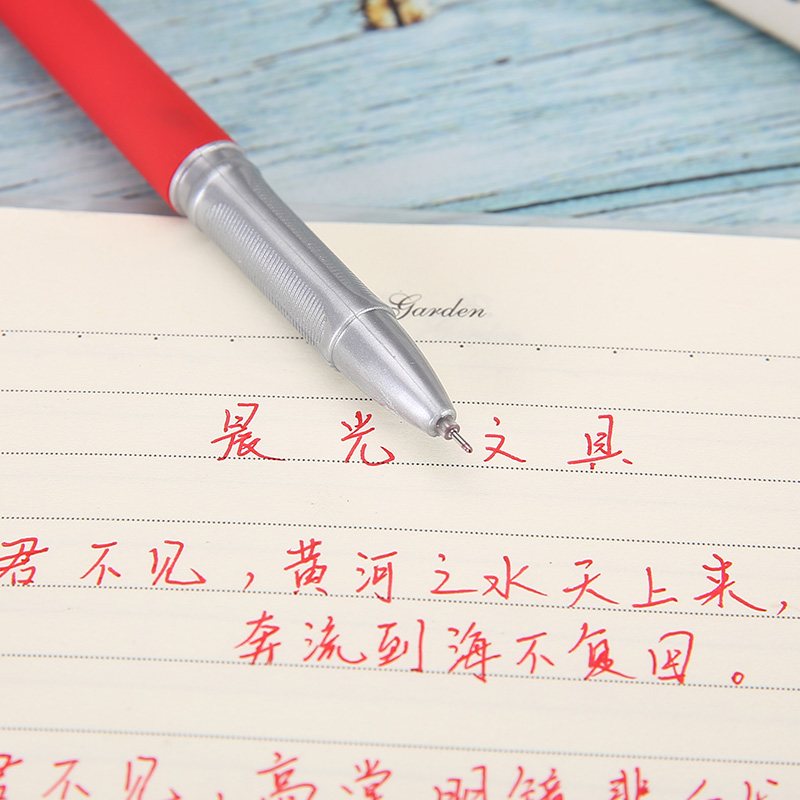 Garden
晨光文具
君不见,黄河之水天上来,
奔流到海不复回。
君不见,高堂明镜悲